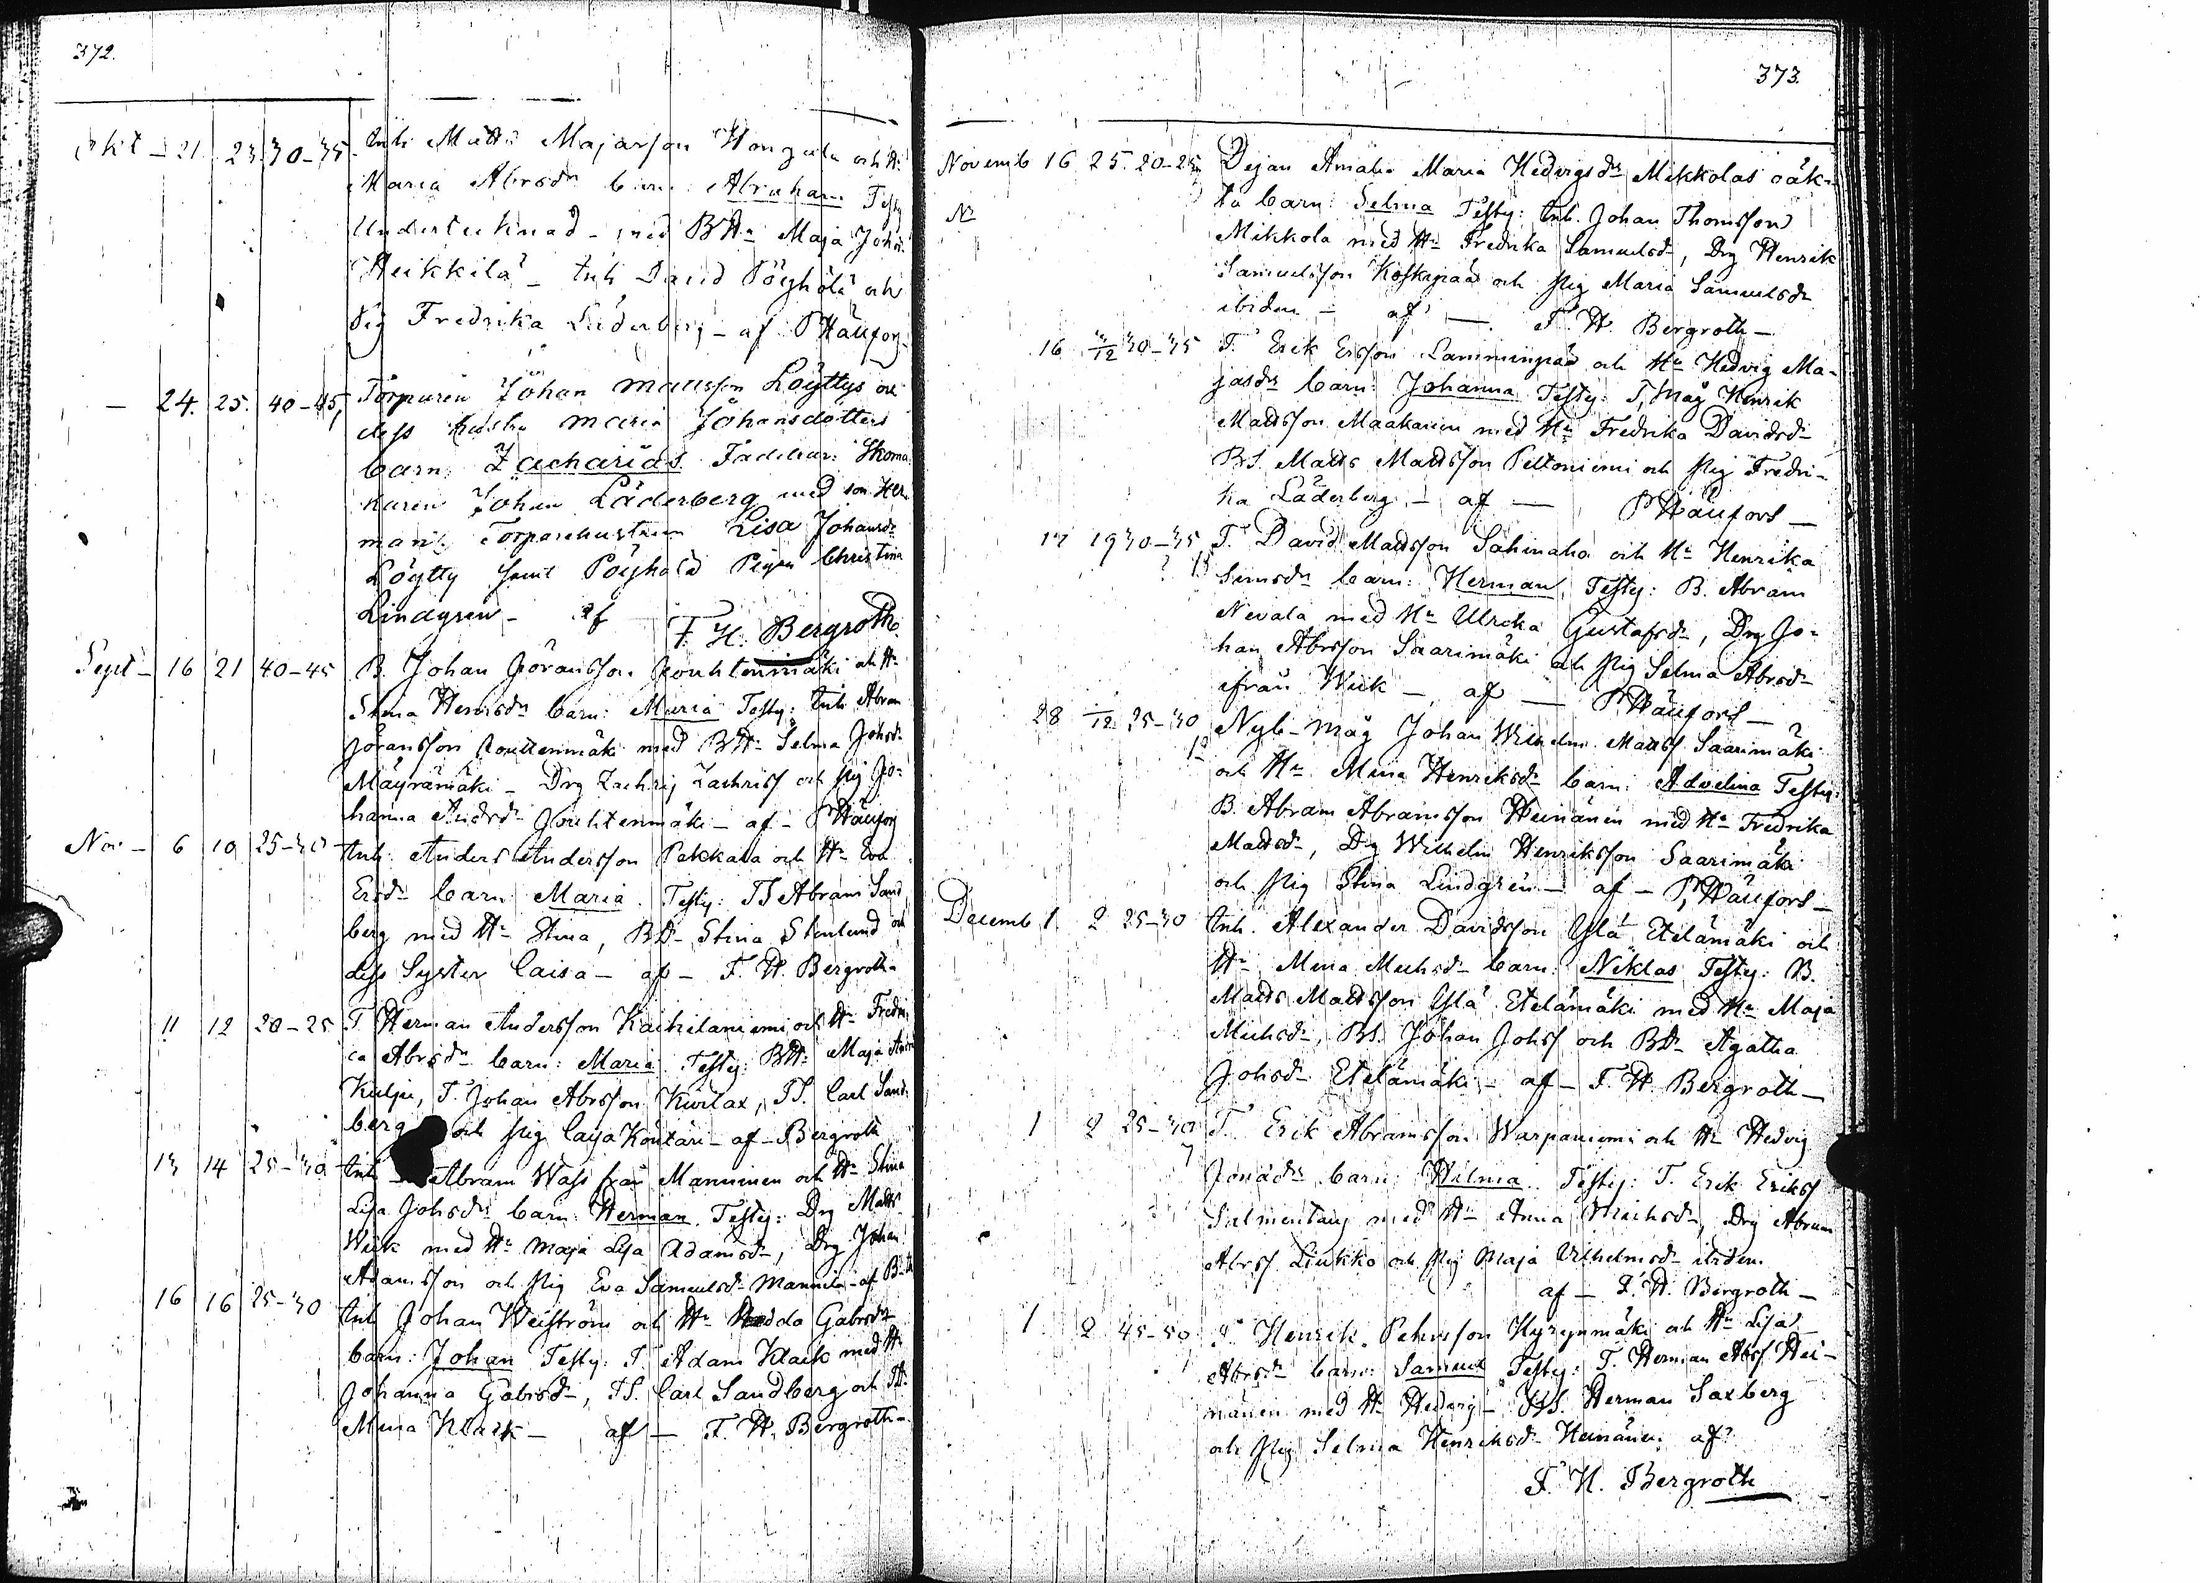 372.
Okt – 21. 23. 30–35. Inh Matts Majasson Hongala och H:
Maria Abrsdr barn: Abraham Testy
Undertecknad – med BHu Maja Johsd:
Heikkilä – Inh David Pöyhölä och
Pig Fredrika Läderberg – af P Häufors
– 24. 25. 40–45, Torparen Johan Mattsson Löyttys och
dess hustru Maria Johansdotters
barn: Zacharias. Faddrar: Skoma-
karen Johan Läderberg med son Her-
man, Torparehustrun Lisa Johansdr
Löytty samt Pöyhölä Pigan Christina
Lindgren – af F. H. Bergroth.
Sept – 16 21 40–45 B. Johan Göransson Kouhtenmäki och Hu
Stina Henrsdr barn: Maria Testy: Inh Abram
Göransson Kouhtenmäki med BHu Selma Johsdr
Mäyrämäki – Drg Zachris Zachriss och Pig Jo-
hanna Andrsdr Kouhtenmäki – af – P Häufors
Nov – 6 10 25–30 Inh: Anders Andersson Pakkala och Hu Eva
Ersdr barn Maria. Testy: TS Abram Sand
berg med Hu Stina, BD– Stina Stenlund och
dess Syster Caisa – af – F. H. Bergroth–
11 12 20–25 T Herman Andersson Kaihilaniemi och Hu Fredri
ca Abrsdr barn: Maria. Testy: BHu Maja
Kulju, T. Johan Abrsson Kivilax, TS. Carl Sand-
berg och Pig Caja Kontäri – af – Bergroth
13 14 25–30 Inh Abram Wass från Manninen och Hu Stina
Lisa Johsdr barn: Herman. Testy: Drg Matts
Wiik med Hu Maja Lisa Adamsdr, Drg Johan
Adamsson och Pig Eva Samuelsdr Mannila – af B–th
16 16 25–30 Inh Johan Weiström och Hu Hedda Gabrsdr
barn: Johan Testy: T. Adam Klack med Hu
Johanna Gabrsdr, TS. Carl Sandberg och TD.
Mina Klack – af – F. H. Bergroth –
373.
Novemb 16 25. 20–25 Pigan Amalia Maria Hedvigsdr Mikkolas oäk-
No ta barn: Selma Testy: Inh. Johan Thomsson
Mikkola med Hu Fredrika Samuelsdr, Drg Henrik
Samuelsson Koskipää och Pig Maria Samuelsdr
ibidem – af – F. H. Bergroth –
16 3/12 30–35 T. Erik Ersson Lamminpää och Hu Hedvig Ma-
jasdr barn: Johanna Testy: T, Måg Henrik
Mattsson Maakanen med Hu Fredrika Davidsdr
BS. Matts Mattsson Peltoniemi och Pig Fredri-
ka Läderberg – af – P Häufors –
17 19 30–35 T. David Mattsson Sahinaho och Hu Henrika
Simsdr barn: Herman, Testy: B. Abram
Nevala med Hu Ulrika Gustafsdr, Drg Jo-
han Abrsson Saarimäki och Pig Selma Abrsdr
ifrån Wiik – af – P Häufors –
28 /12 25–30 Nyb-måg Johan Wilhelm Mattss Saarimäki
och Hu Mina Henriksdr barn: Advelina Testy:
B. Abram Abramsson Heinänen med Hu Fredrika
Mattsdr, Drg Wilhelm Henriksson Saarimäki
och Pig Stina Lindgrén – af – P, Häufors –
Decemb 1. 2 25–30 Inh. Alexander Davidsson Ylä Etelämäki och
Hu Mina Michsdr barn: Niklas Testy: B.
Matts Mattsson Ylä Etelämäki med Hu Maja
Michsdr, BS. Johan Johss och BD– Agatha
Johsdr Etelämäki – af – F. H. Bergroth –
1 2 25–30 T. Erik Abramsson Warpaniemi och Hu Hedvig
Jonasdr barn: Hilma. Testy: T. Erik Erikss
Salmentaus med Hu Anna Michsdr, Drg Abram
Abrss Liukko och Pig Maja Vilhelmsdr ibidem.
af – F. H. Bergroth –
1. 2 45–50 T. Henrik Pehrsson Hyrynmäki och Hu Lisa
Abrsdr barn: Samuel Testy: T. Herman Abrss Hei-
nänen med Hu Hedvig – BS. Herman Saxberg
och Pig Selma Henriksdr Heinänen; af
F. H. Bergroth